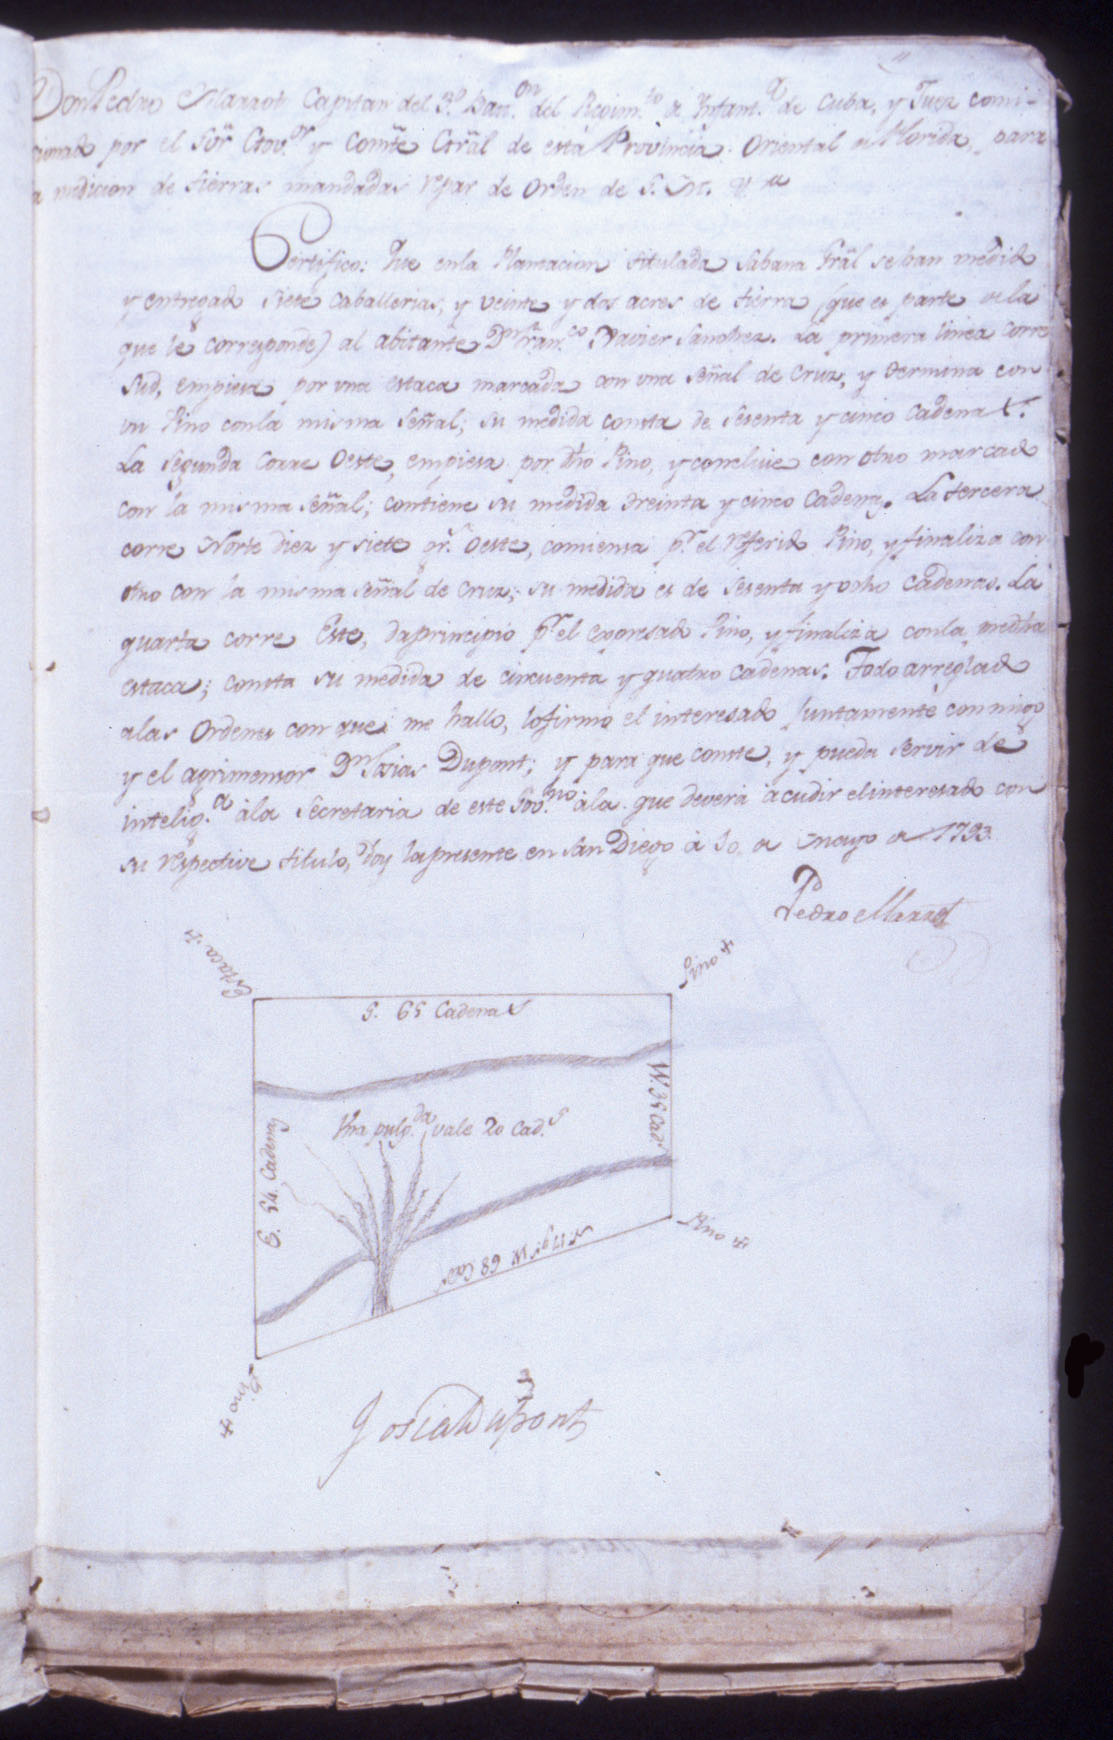 Don Pedro Marrot Capitan del 3º Batn.on del Regim.to de Infant.a de Cuba, y Juez comi-
cionado por el Sōr Gov.or y Comte Grāl de esta Provincia Oriental de Florida, para
la medicion de tierras mandadas repar de Orden de S. M. &a
Certifico: Que enla Plantacion titulada Sabana Grāl se han medido
y entregado siete caballerias, y veinte y dos acres de tierra (que es parte de la
que le corresponde) al abitante Dn Fran.co Xavier Sanchez. La primera linea corre
Sud, empiesa por una estaca marcada con una señal de Cruz, y termina con
un Pino conla misma señal; su medida consta de sesenta y cinco Cadenas.
La segunda corre Oeste, empiesa por dho Pino, y concluie con otro marcado
con la misma señal; contiene su medida treinta y cinco Cadenas. La tercera
corre Norte diez y siete gr.s Oeste, comiensa pr. el referido Pino, y finaliza con
otro con la misma señal de Cruz; su medida es de sesenta y ocho cadenas. La
quarta corre Este, da principio pr. el expresado Pino, y finaliza conla medha
estaca; consta su medida de cincuenta y quatro cadenas. Todo arreglado
alas Ordenes con que me hallo, lo firmo el interesado Juntamente con migo
y el agrimensor Dn Josias Dupont; y para que conste, y pueda servir de
intelig.a ala Secretaria de este Gov.no ala que deverá acudir el interesado con
su respective titulo, doy la presente en San Diego á 10 de Mayo de 1793.
Pedro Marrot
Estaca +
Pino +
S. 65 Cadenas
W. 35 Cad.s
Una pulg.da vale 20 Cad.s
E. 54. Cadenas
N 17 gs W 68 Cad.s
Pino +
Pino +
Josia Dupont